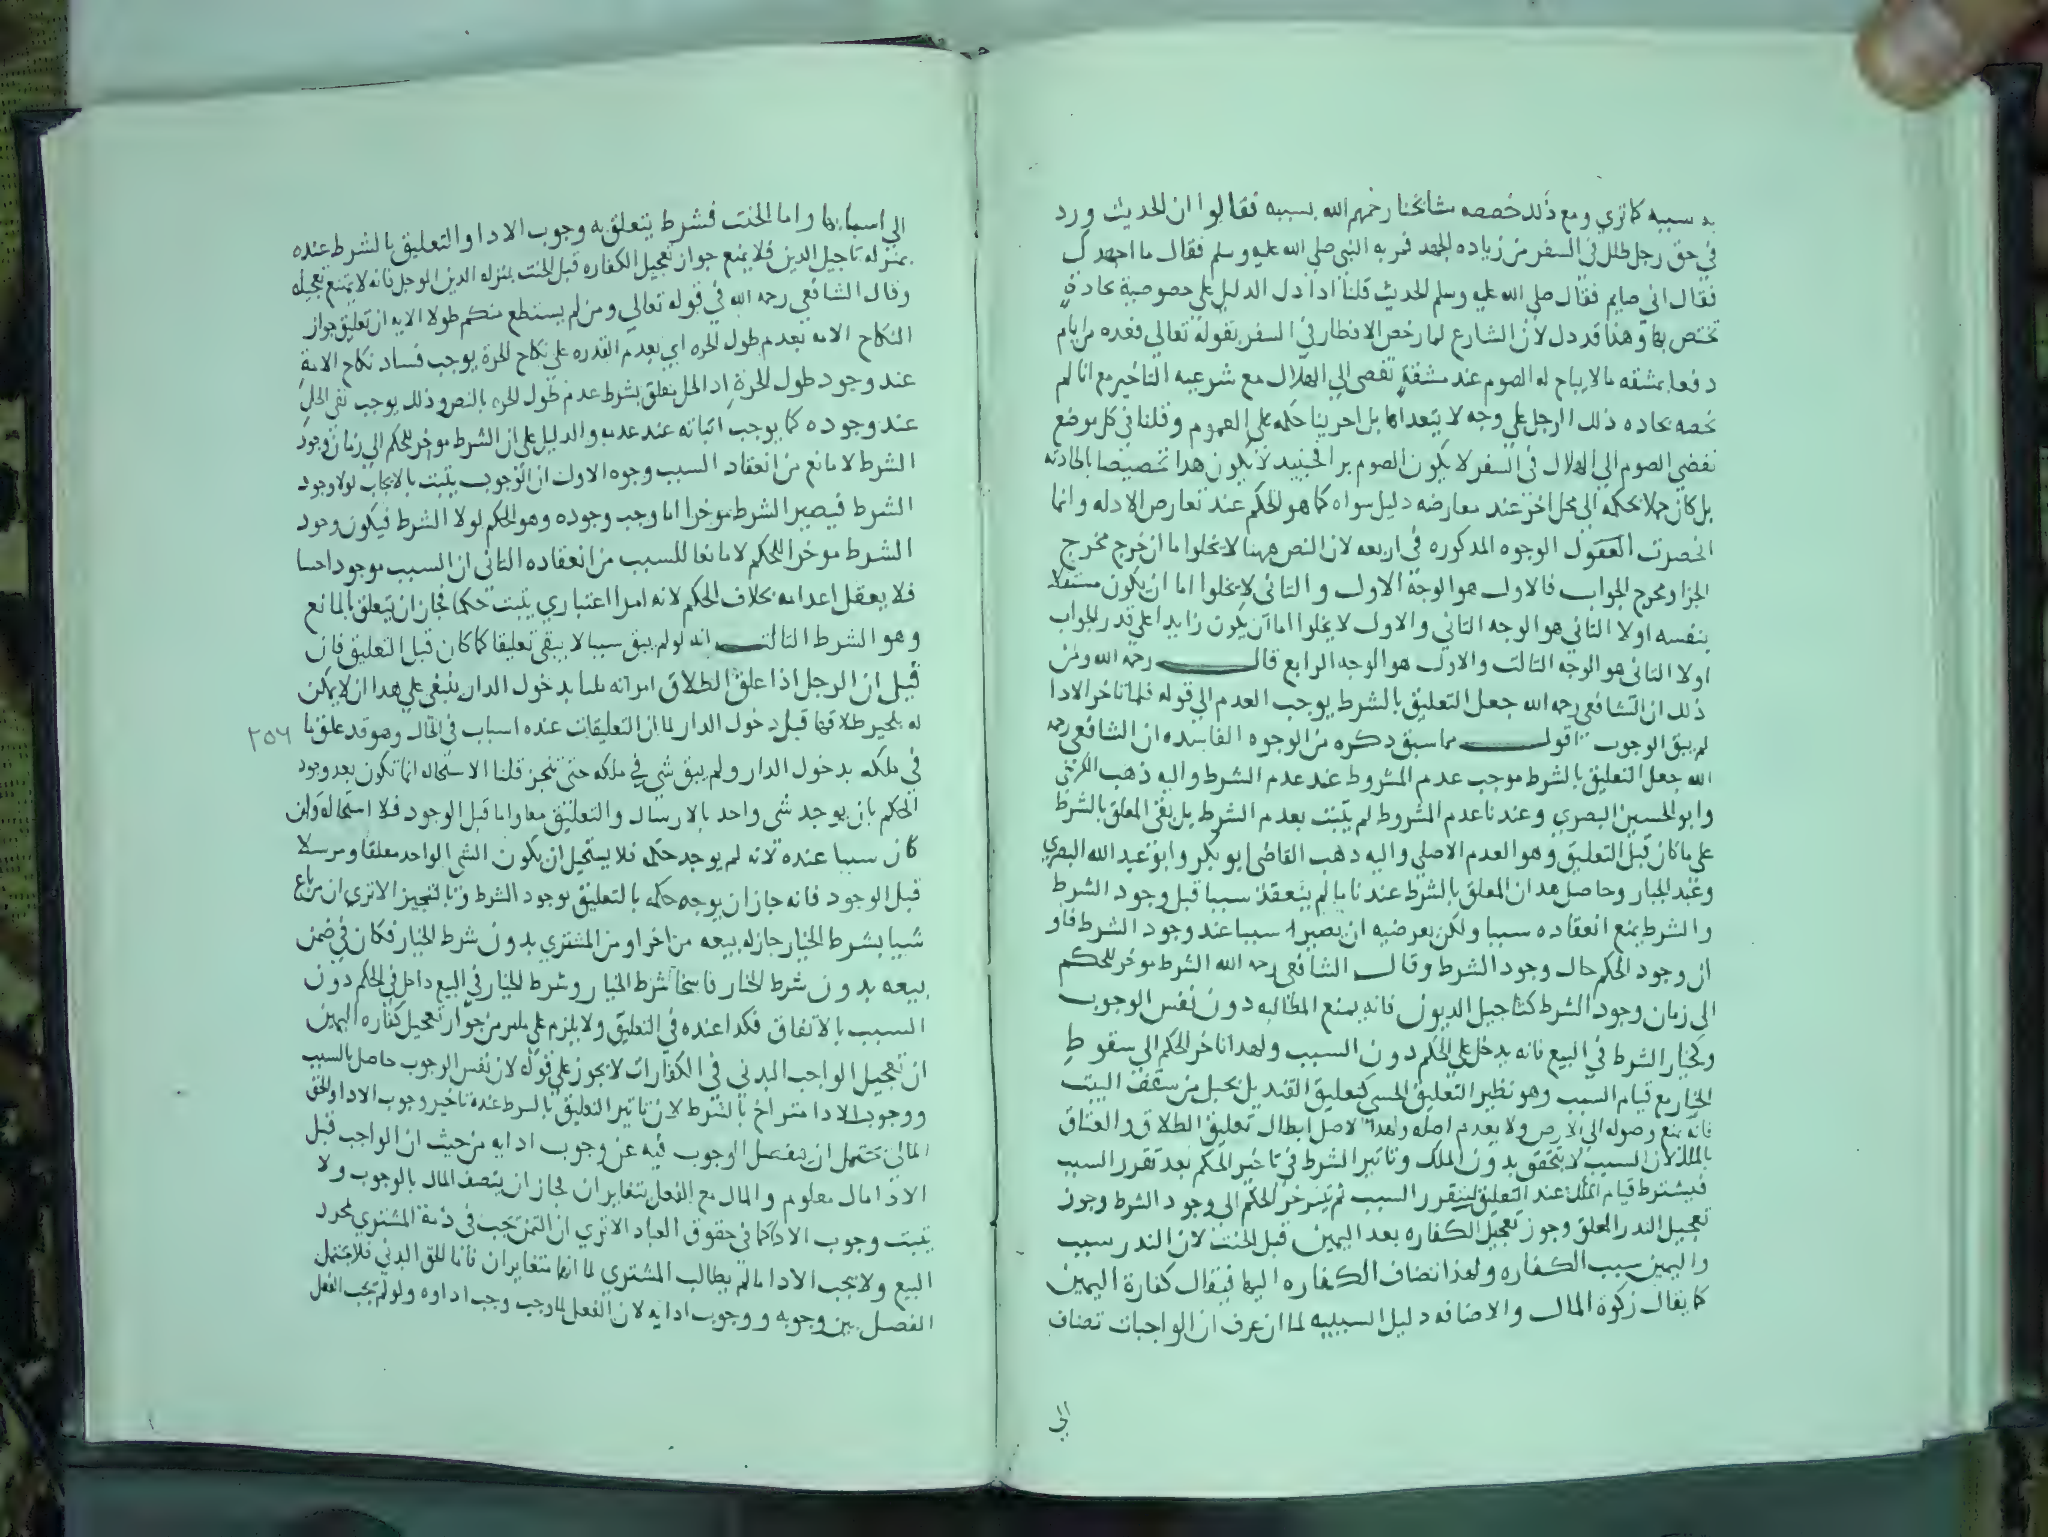 به سببه كما تري ومع ذلك خصصه مشائخنا رحمهم الله بسببه فقالوا ان الحديث ورد
في حق رجل ظلل في السفر من زياده الجهد فمر به النبي صلي الله عليه وسلم فقال ما اجهدك
فقال اني صايم فقال صلي الله عليه وسلم الحديث قلنا اذا دل الدليل علي خصوصية بحادثة
تختص بها وهنا قد دل لان الشارع لما رخص الافطار في السفر بقوله تعالي فعده من ايام
دفعا بمشقه ما لا يباح له الصوم عند مشقة تفضي الي الهلاك مع شرعيه التاخير مع انا لم
نخصه بحاده ذلك الرجل علي وجه لا يتعداها بل اجرينا حكمه علي العموم وقلنا في كل موضع
تفضي الصوم الي الهلاك في السفر لا يكون الصوم برا فحينيد لا يكون هذا تخصيصا بالحادثه
بل كان حملا بحكمه الي محل اخر عند معارضه دليل سواه كما هو الحكم عند تعارض الادله وانما
انحصرت العقول الوجوه المذكوره في اربعه لان النص ههنا لا يخلوا اما ان خرج مخرج
الجزا ومخرج الجواب فالاول هو الوجه الاول والثاني لا يخلوا اما ان يكون مستقلا
بنفسه اولا الثاني هو الوجه الثاني والاول لا يخلوا اما ان يكون زايدا علي قدر الجواب
اولا الثاني هو الوجه الثالث والاول هو الوجه الرابع قال رحمه الله ومن
ذلك ان الشافعي رحمه الله جعل التعليق بالشرط يوجب العدم الي قوله فلما تاخر الادا
لم يبق الوجوب اقول مما سبق ذكره من الوجوه الفاسده ان الشافعي رحمه
الله جعل التعليق بالشرط موجب عدم المشروط عند عدم الشرط واليه ذهب الكرخي
وابو الحسين البصري وعندنا عدم المشروط لم يثبت بعدم الشرط بل بقي المعلق بالشرط
علي ما كان قبل التعليق وهو العدم الاصلي واليه ذهب القاضي ابو بكر وابو عبد الله البصري
وعبد الجبار وحاصل هذا ان المعلق بالشرط عندنا ما لم ينعقد سببا قبل وجود الشرط
والشرط يمنع انعقاده سببا ولكن بعرضيه ان يصير سببا عند وجود الشرط فاو
ان وجود الحكم حال وجود الشرط وقال الشافعي رحمه الله الشرط موخر للحكم
الي زمان وجود الشرط كتاجيل الديون فانه يمنع المطالبه دون نفس الوجوب
وكخيار الشرط في البيع فانه يدخل علي الحكم دون السبب ولهذا تاخر الحكم الي سقوط
الخيار مع قيام السبب وهو نظير التعليق الحسي كتعليق القنديل بحبل من سقف البيت
فانه يمنع وصوله الي الارض ولا يعدم اصله ولهذا الاصل ابطال تعليق الطلاق والعتاق
بالملك لان السبب لا يتحقق بدون الملك وتاثير الشرط في تاخير الحكم بعد تقرر السبب
فيشترط قيام الملك عند التعليق ليتقرر السبب ثم يتاخر الحكم الي وجود الشرط وجوز
تعجيل النذر المعلق وجوز تعجيل الكفاره بعد اليمين قبل الحنث لان النذر سبب
واليمين سبب الكفاره ولهذا تضاف الكفاره اليها فيقال كفارة اليمين
كما يقال زكوة المال والاضافه دليل السببيه لما ان عرف ان الواجبات تضاف
الي
الي اسبابها واما الحنث فشرط يتعلق به وجوب الادا والتعليق بالشرط عنده
بمنزله تاجيل الدين فلا يمنع جواز تعجيل الكفاره قبل الحنث بمنزله الدين الموجل فانه لا يمتنع تعجيله
وقال الشافعي رحمه الله في قوله تعالي ومن لم يستطع منكم طولا الايه ان تعليق جواز
النكاح الامه بعدم طول الحره اي بعدم القدره علي نكاح الحرة يوجب فساد نكاح الامة
عند وجود طول الحرة اذ الحل يعلق بشرط عدم طول الحره بالنص وذلك يوجب نفي الحل
عند وجوده كما يوجب اثباته عند عدمه والدليل علي ان الشرط موخر للحكم الي زمان وجود
الشرط لا مانع من انعقاد السبب وجوه الاول ان الوجوب يثبت بالايجاب لولا وجود
الشرط فيصير الشرط موخرا اما وجب وجوده وهو الحكم لولا الشرط فيكون وجود
الشرط موخرا للحكم لا مانعا للسبب من انعقاده الثاني ان السبب موجود احسا
فلا يعقل اعدامه بخلاف الحكم لانه امرا اعتباري يثبت حكما فجاز ان يتعلق بالمانع
وهو الشرط الثالث انه لو لم يبق سببا لا يبقي تعليقا كما كان قبل التعليق فان
قيل ان الرجل اذا علق الطلاق امراته ثلثا بدخول الدار ينبغي علي هذا ان لا يمكن
له تنجيز طلاقها قبل دخول الدار لما ان التعليقات عنده اسباب في الحال وهو قد علق ما
٢٥٦
في ملكه بدخول الدار ولم يبق شي في ملكه حتي ينجز قلنا الاستحاله انما تكون بعد وجود
الحكم بان يوجد شي واحد بالارسال والتعليق معا واما قبل الوجود فلا استحاله وان
كان سببا عنده لانه لم يوجد حكمه فلا يستحيل ان يكون الشي الواحد معلقا ومرسلا
قبل الوجود فانه جاز ان يوجد حكمه بالتعليق بوجود الشرط وبالتنجيز الا تري ان من باع
شيا بشرط الخيار جاز له بيعه من اخر او من المشتري بدون شرط الخيار فكان في ضمن
بيعه بدون شرط الخيار فاسخا شرط الخيار وشرط الخيار في البيع داخل في الحكم دون
السبب بالاتفاق فكذا عنده في التعليق ولا يلزم علي من جواز تعجيل كفاره اليمين
ان تعجيل الواجب البدني في الكفارات لا يجوز علي قوله لان نفس الوجوب حاصل بالسبب
ووجوب الادا متراخ بالشرط لان تاثير التعليق بالشرط عنده تاخير وجوب الادا والحق
المالي يحتمل ان ينفصل الوجوب فيه عن وجوب ادايه من حيث ان الواجب قبل
الادا مال معلوم والمال مع الفعل يتغايران فجاز ان يتصف المال بالوجوب ولا
يثبت وجوب الادا كما في حقوق العباد الا تري ان الثمن يجب في ذمة المشتري بمجرد
البيع ولا يجب الادا ما لم يطالب المشتري لما انهما متغايران فاما الحق البدني فلا يحتمل
الفصل بين وجوبه ووجوب ادايه لان الفعل لما وجب وجب اداوه ولو لم يجب الفعل